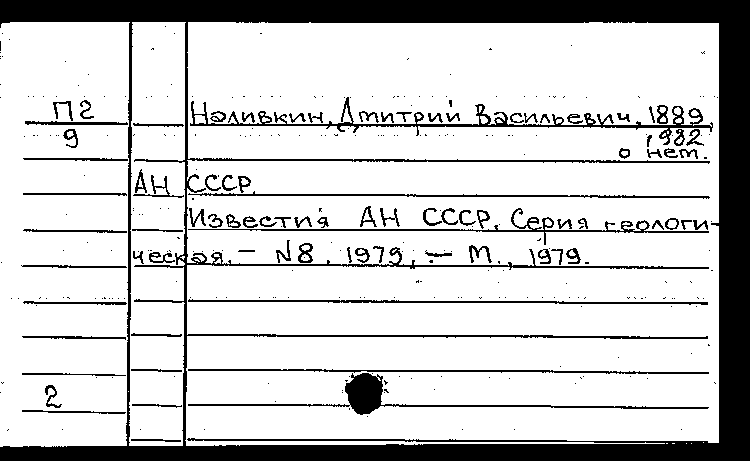 П2 Наливкин, Дмитрий Васильевич, 1889,
9 1982
о нем.
АН СССР.
Известия АН СССР. Серия геологи-
ческая. - N8. 1979. - М., 1979.
2